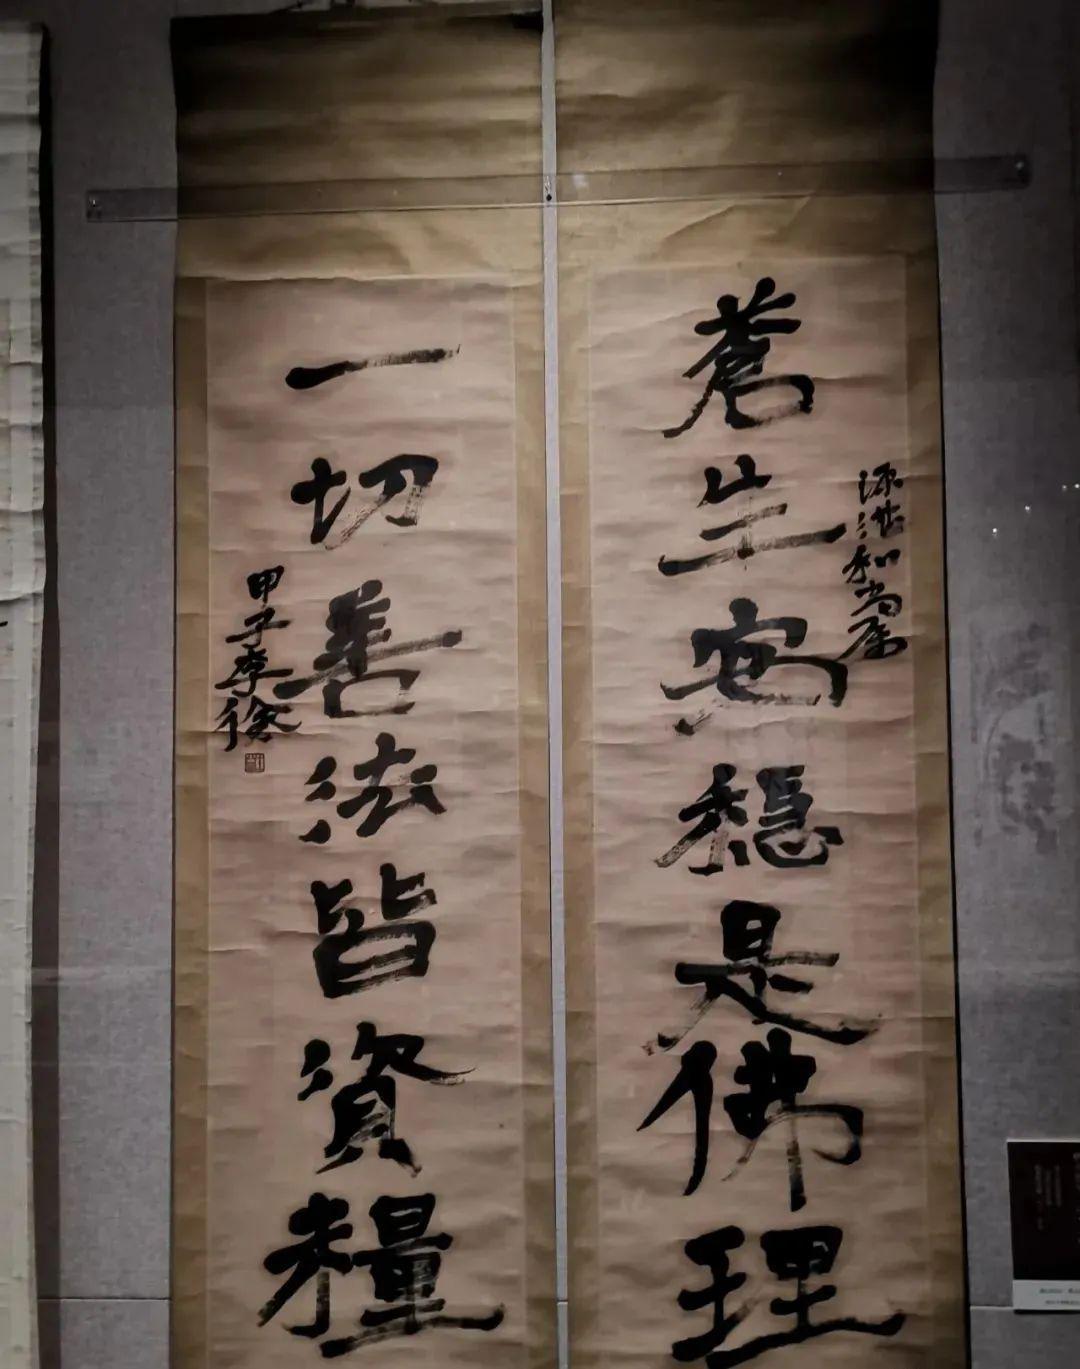 源法和尚屬
蒼生安穩是佛理
一切善法皆資糧
甲子李徐